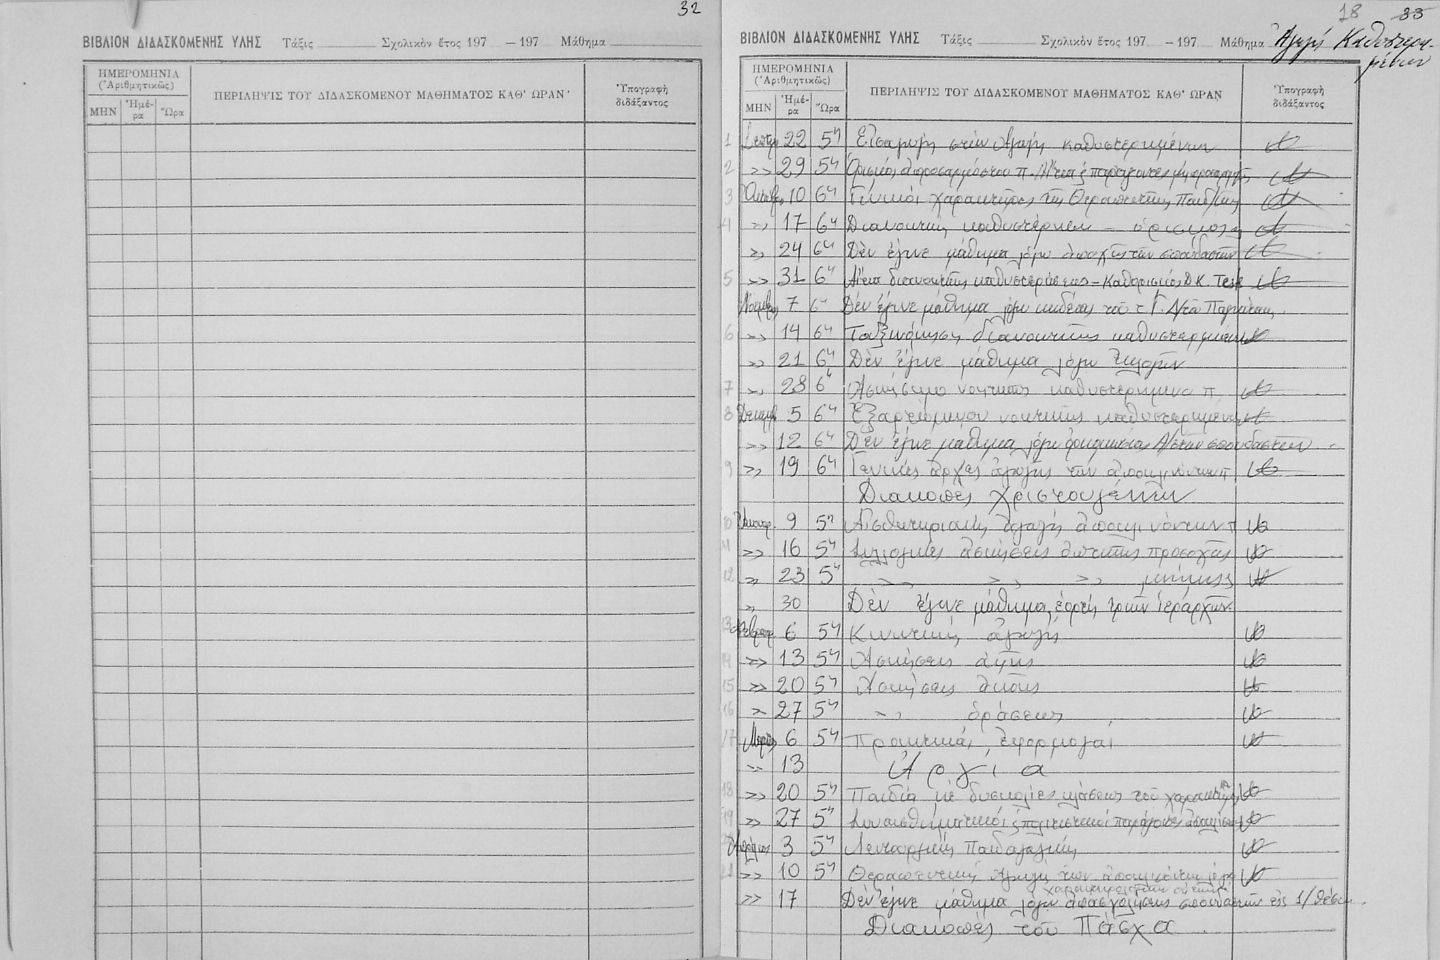 32
ΒΙΒΛΙΟΝ ΔΙΔΑΣΚΟΜΕΝΗΣ ΥΛΗΣ Τάξις Σχολικὸν ἔτος 197 – 197 Μάθημα
ΗΜΕΡΟΜΗΝΙΑ
(Ἀριθμητικῶς)
ΜΗΝ Ἡμέρα Ὥρα
ΠΕΡΙΛΗΨΙΣ ΤΟΥ ΔΙΔΑΣΚΟΜΕΝΟΥ ΜΑΘΗΜΑΤΟΣ ΚΑΘ' ΩΡΑΝ
Ὑπογραφὴ διδάξαντος
18 33
ΒΙΒΛΙΟΝ ΔΙΔΑΣΚΟΜΕΝΗΣ ΥΛΗΣ Τάξις Σχολικὸν ἔτος 197 – 197 Μάθημα Ἀγωγὴ Καθυστερημένων
ΗΜΕΡΟΜΗΝΙΑ
(Ἀριθμητικῶς)
ΜΗΝ Ἡμέρα Ὥρα
ΠΕΡΙΛΗΨΙΣ ΤΟΥ ΔΙΔΑΣΚΟΜΕΝΟΥ ΜΑΘΗΜΑΤΟΣ ΚΑΘ' ΩΡΑΝ
Ὑπογραφὴ διδάξαντος
1 Σεπτμ. 22 5η Εἰσαγωγὴ στὴν Ἀγωγὴ καθυστερημένων
2 >> 29 5η Ὁρισμὸς
3 Ὀκτωβρ. 10 6η Γενικοὶ χαρακτῆρες τῆς Θεραπευτικῆς Παιδ/κῆς
4 >> 17 6η Διανοητικὴ καθυστέρησις –
>> 24 6η Δὲν ἔγινε μάθημα λόγω ἀποχῆς τῶν σπουδαστῶν
5 >> 31 6η Αἴτια διανοητικῆς καθυστερήσεως – Καθορισμὸς Δ.Κ. Τεστ
Νοεμβρ. 7 6η Δὲν ἔγινε μάθημα λόγω κηδείας τοῦ
6 >> 14 6η Ταξινόμησις διανοητικῶς καθυστερημένων
>> 21 6η Δὲν ἔγινε μάθημα λόγω ἐκλογῶν
7 >> 28 6η Ἀσκήσιμα νοητικῶς καθυστερημένα π.
8 Δεκεμβ. 5 6η Ἐξαρτώμενοι νοητικῶς καθυστερημένοι
>> 12 6η Δὲν ἔγινε μάθημα λόγω σπουδαστῶν
9 >> 19 6η Γενικὲς ἀρχὲς ἀγωγῆς τῶν ἀποκλινόντων π.
Διακοπὲς Χριστουγέννων
10 Ἰανουαρ. 9 5η Αἰσθητηριακὴ ἀγωγὴ ἀποκλινόντων π
11 >> 16 5η Συλλογικὲς ἀσκήσεις ὀπτικῆς προσοχῆς
12 >> 23 5η >> >> >> μνήμης
>> 30 Δὲν ἔγινε μάθημα, ἑορτὴ τριῶν ἱεραρχῶν
13 Φεβρουαρ. 6 5η Κινητικὴ ἀγωγὴ
14 >> 13 5η Ἀσκήσεις ἁφῆς
15 >> 20 5η Ἀσκήσεις ἀκοῆς
16 >> 27 5η >> ὁράσεως
17 Μαρτ. 6 5η Πρακτικαὶ ἐφαρμογαὶ
>> 13 Ἀργία
18 >> 20 5η Παιδιὰ μὲ δυσκολίες πλάσεως τοῦ χαρακτῆρος
19 >> 27 5η Συναισθηματικοὶ
20 Ἀπρίλιος 3 5η Λειτουργικὴ Παιδαγωγικὴ
21 >> 10 5η Θεραπευτικὴ ἀγωγὴ τῶν
>> 17 Δὲν ἔγινε μάθημα λόγω ἀπασχολήσεως σπουδαστῶν εἰς
Διακοπὲς τοῦ Πάσχα